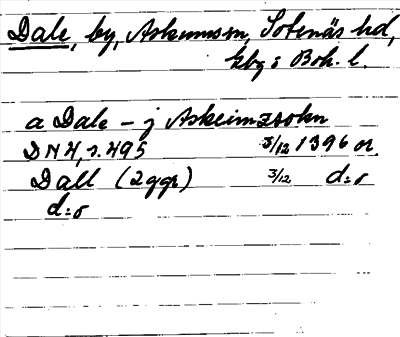 Dale, by, Askumsn, Sotenäs hd,
Gbg o Boh. l.
a Dale – j Askeimzsokn
DN 4, s. 495 3/12 1396 or.
Dall (2 ggr) 3/12 d:o
d:o